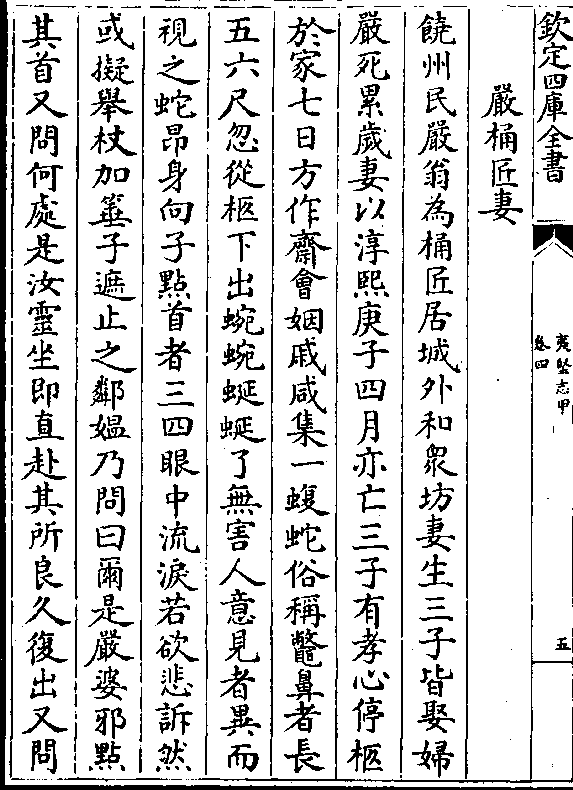 欽定四庫全書
夷堅志甲
卷四
五
嚴桶匠妻
饒州民嚴翁為桶匠居城外和衆坊妻生三子皆娶婦
嚴死累歲妻以淳熙庚子四月亦亡三子有孝心停柩
於家七日方作齋會姻戚咸集一蝮蛇俗稱鼈鼻者長
五六尺忽從柩下出蜿蜿蜒蜒了無害人意見者異而
視之蛇昂身向子點首者三四眼中流淚若欲悲訴然
或擬舉杖加箠子遮止之鄰媪乃問曰爾是嚴婆邪點
其首又問何處是汝靈坐即直赴其所良久復出又問